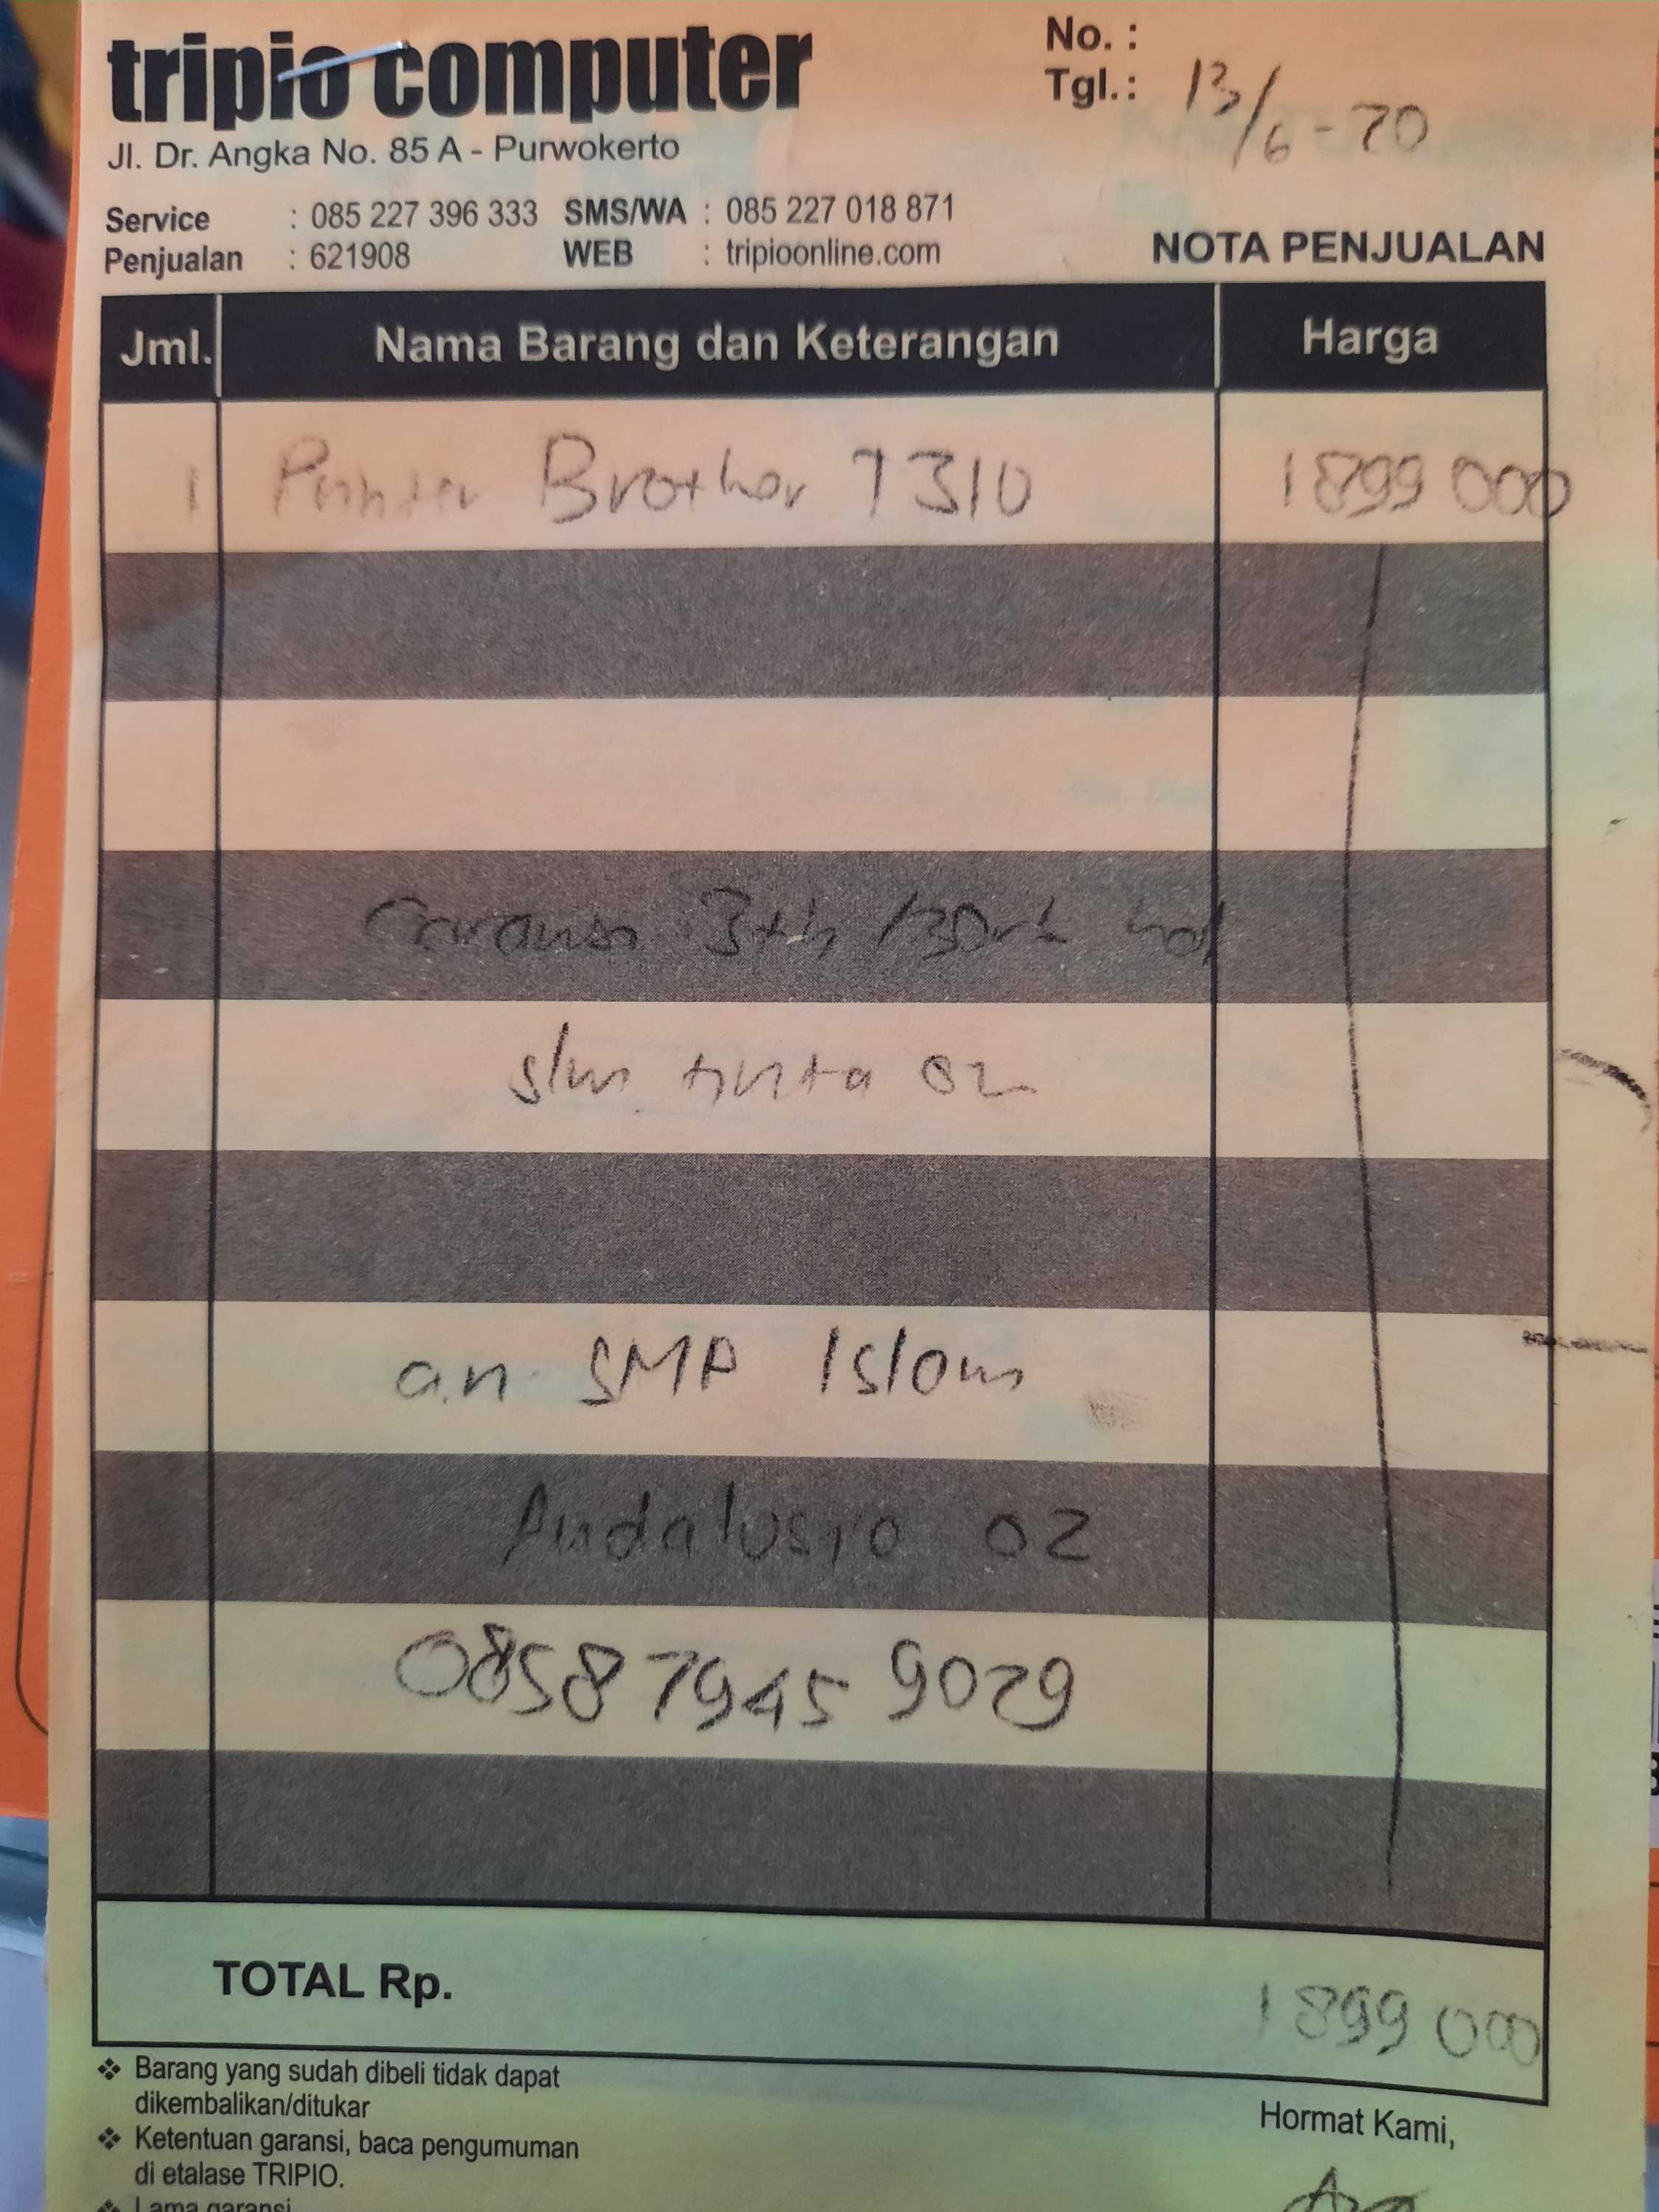 tripio computer
Jl. Dr. Angka No. 85 A - Purwokerto
No. :
Tgl.: 13/6-20
Service : 085 227 396 333 SMS/WA : 085 227 018 871
Penjualan : 621908 WEB : tripioonline.com
NOTA PENJUALAN
Jml. Nama Barang dan Keterangan Harga
1 Printer Brother T310 1899 000
Garansi 3th /30rb
tinta
an SMP Islam
Andalusia 02
0858 7945 9029
TOTAL Rp. 1899 000
❖ Barang yang sudah dibeli tidak dapat
dikembalikan/ditukar
❖ Ketentuan garansi, baca pengumuman
di etalase TRIPIO.
❖ Lama garansi
Hormat Kami,